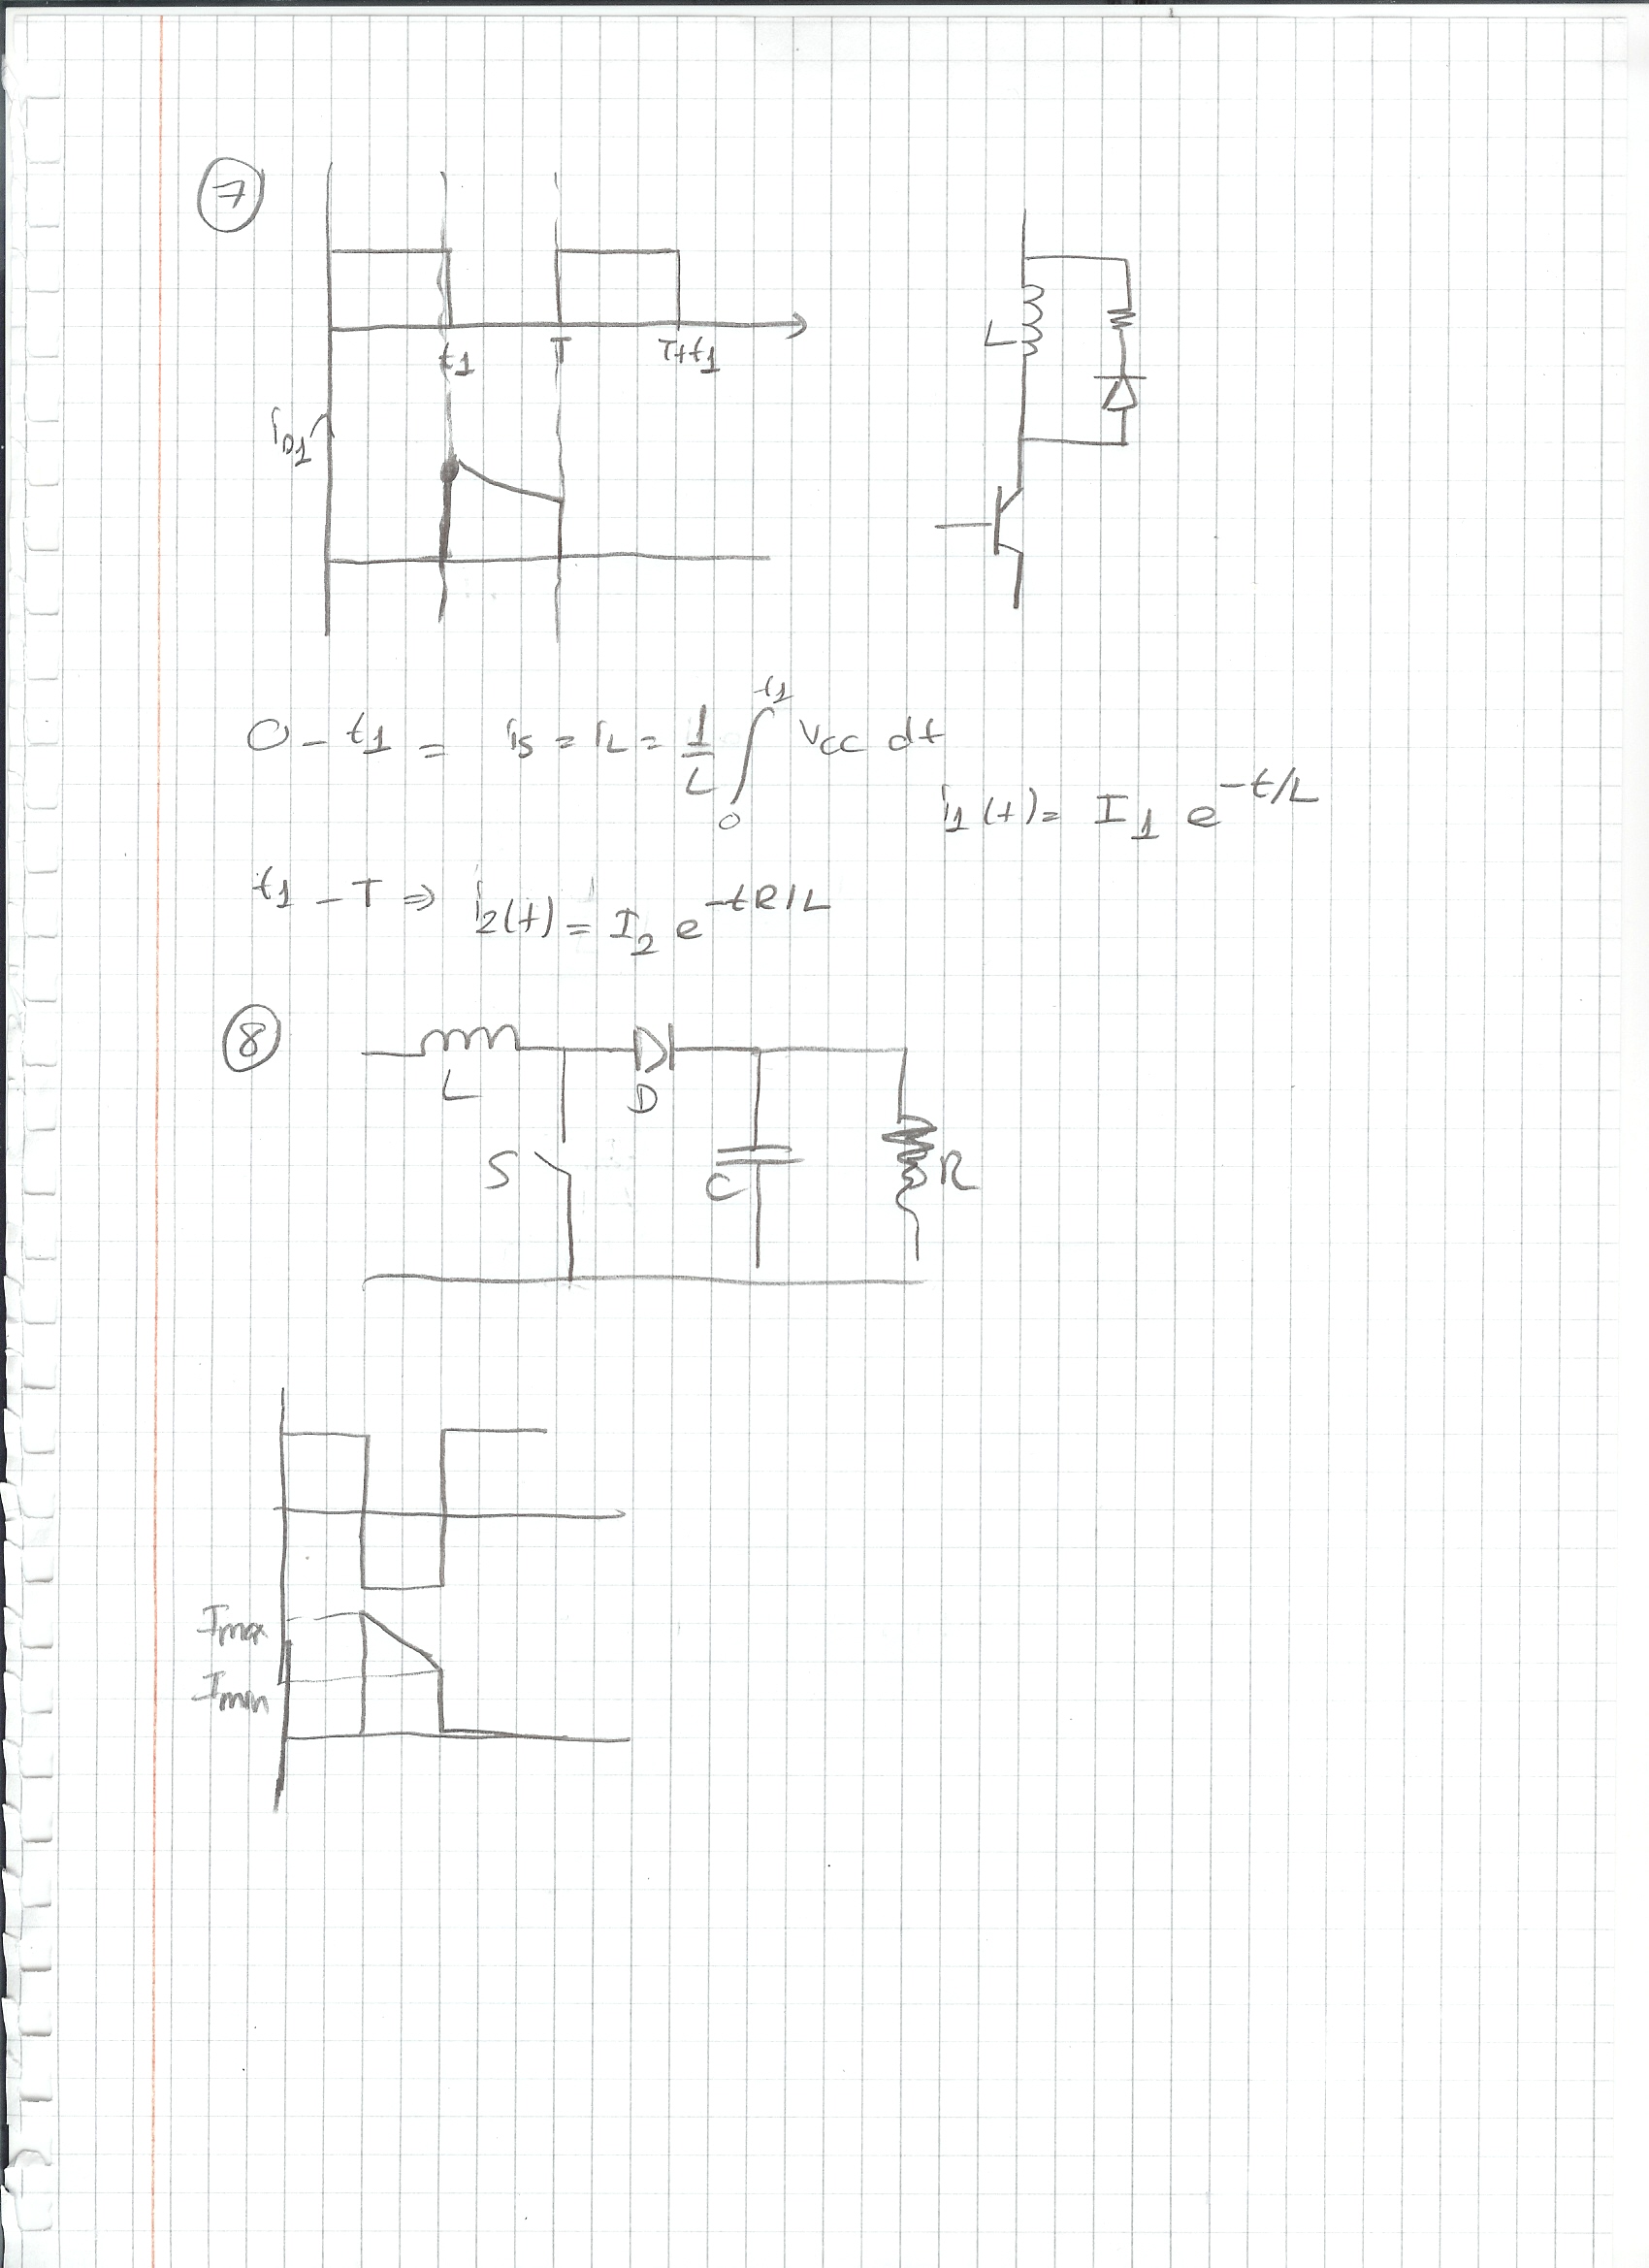 7
t1 T T+t1
L
iD1
0 - t1 = is = iL = 1/L ∫₀^t1 Vcc dt
i1(t) = I1 e^-t/L
t1 - T ⇒ i2(t) = I2 e^-tR/L
8
L D
S C R
Imax
Imin